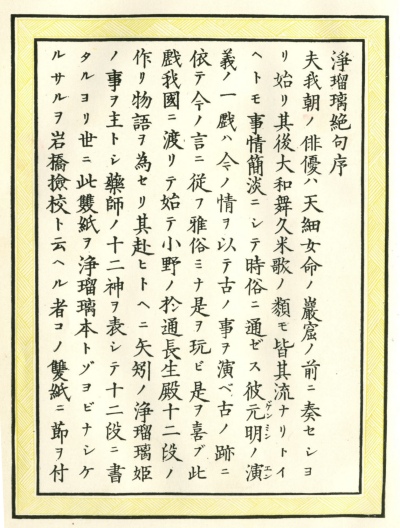 淨瑠璃絶句序
夫我朝ノ俳優ハ天細女命ノ巖窟ノ前ニ奏セシヨ
リ始リ其後大和舞久米歌ノ類モ皆其流ナリトイ
ヘトモ事情簡淡ニシテ時俗ニ通ゼス彼元明ノ演
ゲンミン エン
義ノ一戲ハ今ノ情ヲ以テ古ノ事ヲ演ベ古ノ跡ニ
依テ今ノ言ニ従フ雅俗ミナ是ヲ玩ビ是ヲ喜ブ此
戲我國ニ渡リテ始テ小野ノ於通長生殿十二段ノ
作リ物語ヲ為セリ其赴ヒトヘニ矢矧ノ浄瑠璃姫
ノ事ヲ主トシ藥師ノ十二神ヲ表シテ十二段ニ書
タルヨリ世ニ此雙紙ヲ浄瑠璃本トゾヨビナシケ
ルサルヲ岩橋撿校ト云ヘル者コノ雙紙ニ節ヲ付